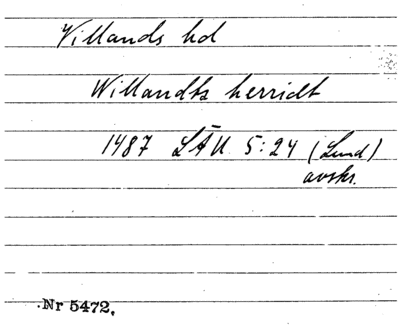 Villands hd
Willandtz herridt
1487 LÄU 5:24 (Lund)
avskr.
Nr 5472.